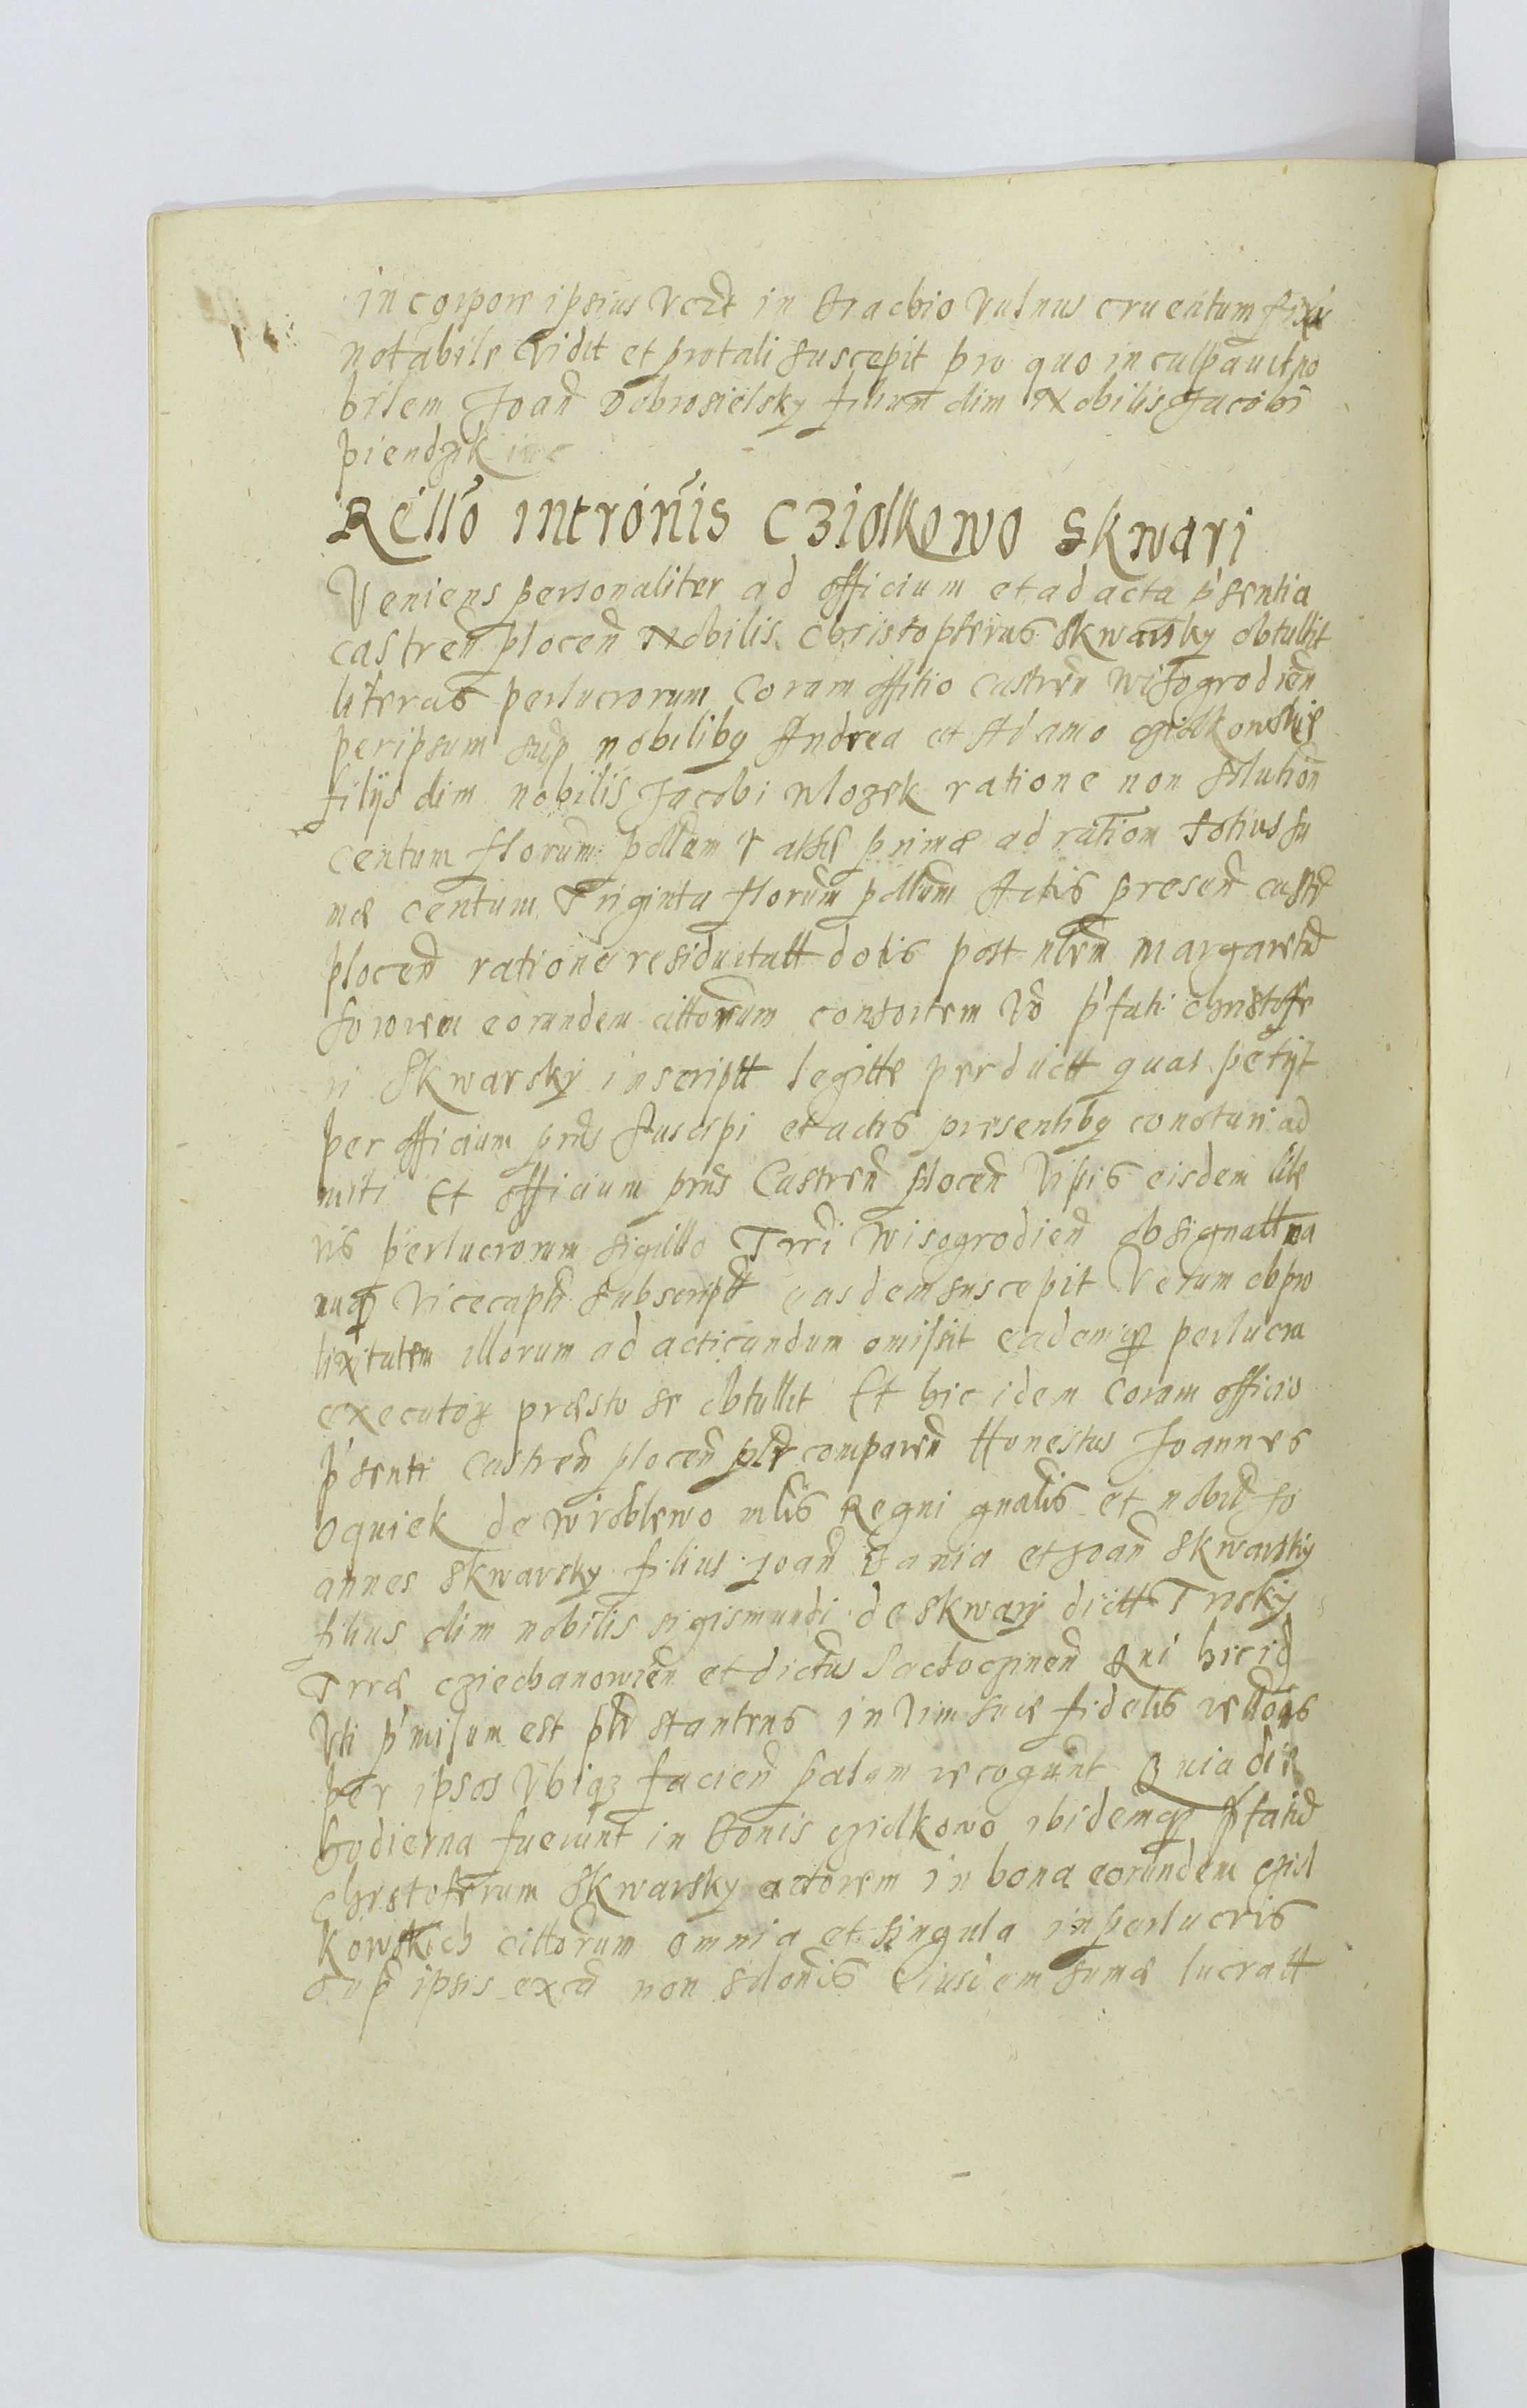 in corpore ipsius vczt in brachio vulnus cruentum
notabile vidit et pro tali suscepit pro quo inculpavit no
bilem Joan̄ Dobrosielsky filium olim Nobilis Jacobi
piendzik
Rello intronis Cziolkowo Skwari
Veniens personaliter ad officium et ad acta p'sentia
castren̄ plocen̄ Nobilis Christopherus Skwarsky obtullit
literas perlucrorum coram offitio castren̄ Wisogrodien̄
per ipsum sup nobilibq Andrea et Adamo cziolkowskie
filijs olim nobilis Jacobi Mozek ratione non solution̄
centum florum pollum rathe primæ ad rationem totius su
mæ centum triginta florum pollum Actis presen̄ castr
plocen̄ ratione residuitatt dotis post nlem Margaretā
sororem eorundem cittorum consortem vō p'fati christofe
ri Skwarsky inscriptt legitte perductt quas petijt
per officium pns suscipi et actis presentibq connotari ad
miti Et officium pns Castren̄ plocen̄ vipis eisdem lite
ris perlucrorum sigillo Trri Wisogrodien̄ obsignatt ma
nuq vicecapti subscriptt easdem suscepit Verum ob pro
lixitatem illorum ad acticandum omissit eademq perlucra
executor præsto se obtullit Et hic idem coram officio
p'senti castren̄ plocen̄ plr comparen̄ Honestus Joannes
Oguiek de Wroblewo mlis Regni gnalis et nobil Jo
annes Skwarsky filius Joan̄ Bania et Joan̄ Skwarsky
filius olim nobilis sigismundi de Skwari dictt Trosky
Trræ cziechanowien̄ et dictus Sachoczinen̄ Qui hic id
vti p'missum est plr stantens in vim suæ fidelis rellonis
per ipsos vbiqz facien̄ palam recogunt Quia die
hodierna fuerunt in bonis cziolkowo ibidemq p'fatū
christoferum Skwarsky actorem in bona eorundem cziol
kowskich cittorum omnia et singula in perlucris
sup ipsis ex cā non solonis eiusdem sumæ lucratt